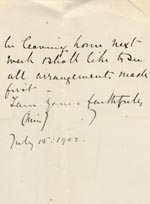 In leaving home next
week I shall like to see
all arrangements made
first.
I am yours faithfully
(Miss)
July 15: 1902.